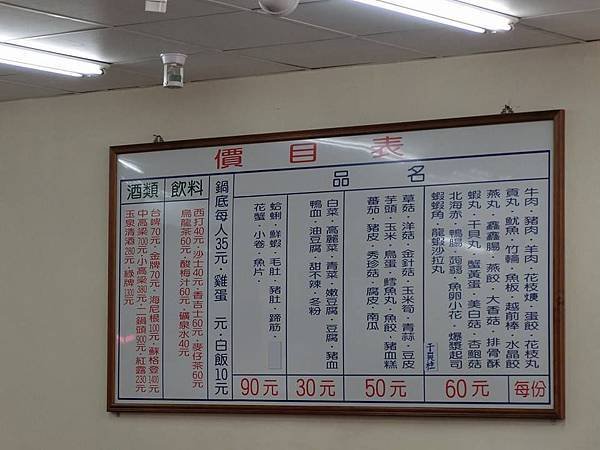 價目表
品名
每份
牛肉・豬肉・羊肉・花枝焿・蛋餃・花枝丸
貢丸・魷魚・竹輪・魚板・越前棒・水晶餃
燕丸・鑫鑫腸・燕餃・大香菇・排骨酥
蝦丸・干貝丸・蟹黃蛋・美白菇・杏鮑菇
北海赤・鴨腸・蒟蒻・魚卵小花・爆漿起司
蝦蝦角・龍蝦沙拉丸
60元
草菇・洋菇・金針菇・玉米筍・青蒜・豆皮
芋頭・玉米・鳥蛋・鱈魚丸・魚餃・豬血糕
蕃茄・豬皮・秀珍菇・腐皮・南瓜
50元
白菜・高麗菜・青菜・嫩豆腐・豆腐・豬血
鴨血・油豆腐・甜不辣・冬粉
30元
蛤蜊・鮮蝦・毛肚・豬肚・蹄筋・
花蟹・小卷・魚片・
90元
鍋底每人35元・雞蛋 元・白飯10元
飲料
西打40元・沙士40元・香吉士60元・麥仔茶60元
烏龍茶60元・酸梅汁60元・礦泉水40元
酒類
台啤70元・金牌70元・海尼根100元・蘇格登1400元
中高梁700元・小高梁380元・二鍋頭900元・紅露230元
玉泉清酒260元・綠牌1300元